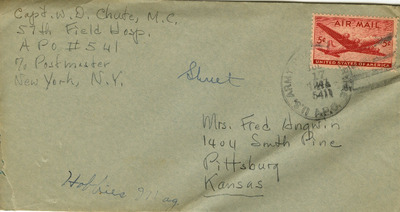 Capt. W. D. Chute, M.C.
57th Field Hosp.
A P O # 541
c/o Postmaster
New York, N.Y.
AIR MAIL
5¢ 5¢
UNITED STATES OF AMERICA
U.S. ARMY
17
541
A.P.O.
Mrs. Fred Angwin
1404 South Pine
Pittsburg
Kansas